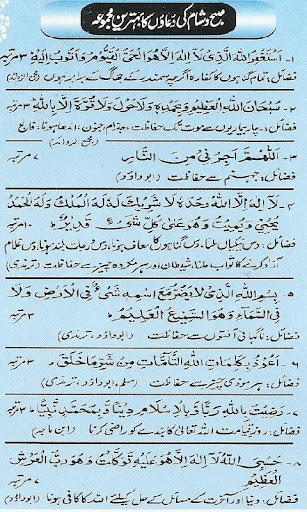 صبح و شام کی دعاؤں کا بہترین مجموعہ
۱۔ اَسْتَغْفِرُ اللهَ الَّذِیْ لَآ اِلٰهَ اِلَّا هُوَ الْحَیُّ الْقَیُّوْمُ وَاَتُوْبُ اِلَیْهِ ۳ مرتبہ
فضائل: تمام گناہوں کا کفارہ اگرچہ سمندر کے جھاگ کے برابر ہوں
۲۔ سُبْحَانَ اللهِ الْعَظِیْمِ وَبِحَمْدِهٖ وَلَا حَوْلَ وَلَا قُوَّةَ اِلَّا بِاللهِ ۳ مرتبہ
فضائل: چار بیماریوں سے موت تک حفاظت، جذام، جنون، اندھا ہونا، فالج
۳۔ اَللّٰهُمَّ اَجِرْنِیْ مِنَ النَّارِ ۷ مرتبہ
فضائل: جہنم سے حفاظت (ابوداؤد)
۴۔ لَآ اِلٰهَ اِلَّا اللهُ وَحْدَهٗ لَا شَرِیْكَ لَهٗ لَهُ الْمُلْكُ وَلَهُ الْحَمْدُ
یُحْیِیْ وَیُمِیْتُ وَهُوَ عَلٰی کُلِّ شَیْءٍ قَدِیْرٌ ۱۰ مرتبہ
فضائل: دس نیکیاں ملنا، دس گناہوں کی معافی ہونا، دس درجات بلند ہونا، دس غلام
آزاد کرنے کا ثواب ملنا، شیطان اور ہر مکروہ چیز سے حفاظت (ترمذی)
۵۔ بِسْمِ اللهِ الَّذِیْ لَا یَضُرُّ مَعَ اسْمِهٖ شَیْءٌ فِی الْاَرْضِ وَلَا
فِی السَّمَآءِ وَهُوَ السَّمِیْعُ الْعَلِیْمُ ۳ مرتبہ
فضائل: ناگہانی آفتوں سے حفاظت (ابوداؤد، ترمذی)
۶۔ اَعُوْذُ بِکَلِمَاتِ اللهِ التَّآمَّاتِ مِنْ شَرِّ مَا خَلَقَ ۳ مرتبہ
فضائل: ہر موذی چیز سے حفاظت (مسلم، ابوداؤد، ترمذی)
۷۔ رَضِیْتُ بِاللهِ رَبًّا وَّبِالْاِسْلَامِ دِیْنًا وَّبِمُحَمَّدٍ نَّبِیًّا ۳ مرتبہ
فضائل: روز قیامت اللہ تعالیٰ کا بندے کو راضی کرنا (ابن ماجہ)
۸۔ حَسْبِیَ اللهُ لَآ اِلٰهَ اِلَّا هُوَ عَلَیْهِ تَوَکَّلْتُ وَهُوَ رَبُّ الْعَرْشِ
الْعَظِیْمِ ۷ مرتبہ
فضائل: دنیا اور آخرت کے مسائل کے حل کیلئے اللہ کا کافی ہونا (ابوداؤد)